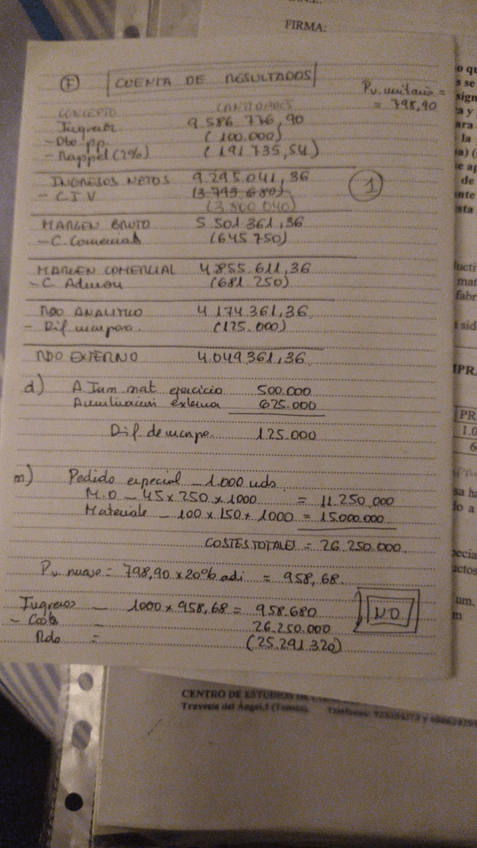 FIRMA:
F CUENTA DE RESULTADOS
Pv. unitario =
= 798,90
CONCEPTO CANTIDADES
Ingresos 9.586.776,90
- Dto pp. (100.000)
- Rappel (2%) (191.735,54)
INGRESOS NETOS 9.295.041,36
- C I V (3.793.680)
(3.800.040)
1
MARGEN BRUTO 5.501.361,36
- C. Comercial (645.750)
MARGEN COMERCIAL 4.855.611,36
- C Admon (681.250)
RDO ANALITICO 4.174.361,36
- Dif incorpora. (125.000)
RDO EXTERNO 4.049.361,36
d) A Inm mat ejercicio 500.000
Amortización externa 625.000
Dif. de incorpo. 125.000
m) Pedido especial - 1.000 uds.
M.O - 45 x 250 x 1000 = 11.250.000
Materiale - 100 x 150 x 1000 = 15.000.000
COSTES TOTALES = 26.250.000.
Pv. nuevo = 798,90 x 20% adi = 958,68.
Ingresos - 1000 x 958,68 = 958.680
- Coste 26.250.000
Rdo = (25.291.320)
NO
CENTRO DE ESTUDIOS
Travesía del Ángel,1 (Torrejón).